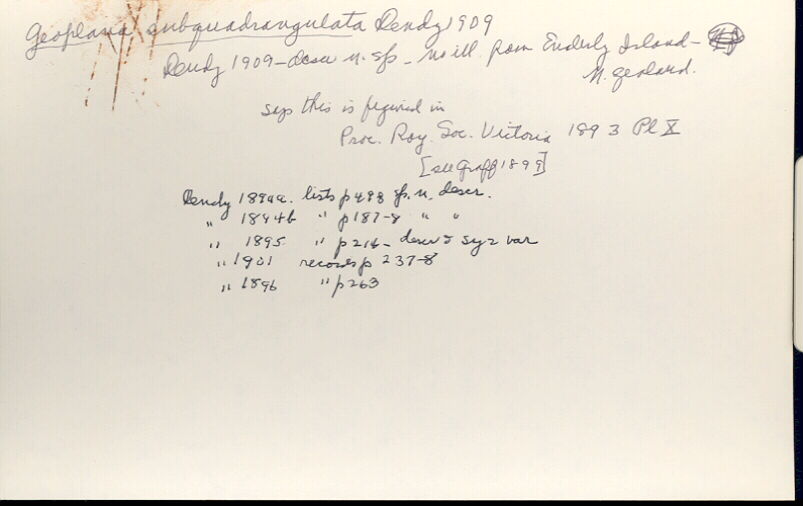 Geoplana subquadrangulata Dendy 1909
Dendy 1909 - descr n. sp - no ill. from Enderly Island -
N. Zealand.
says this is figured in
Proc. Roy. Soc. Victoria 1893 Pl X
[see Graff 1899]
Dendy 1894a. lists p 498 sp. n. descr.
" 1894b " p 187-8 " "
" 1895 " p 214 - descr & sy 2 var
" 1901 records p 237-8
" 1896 " p 263